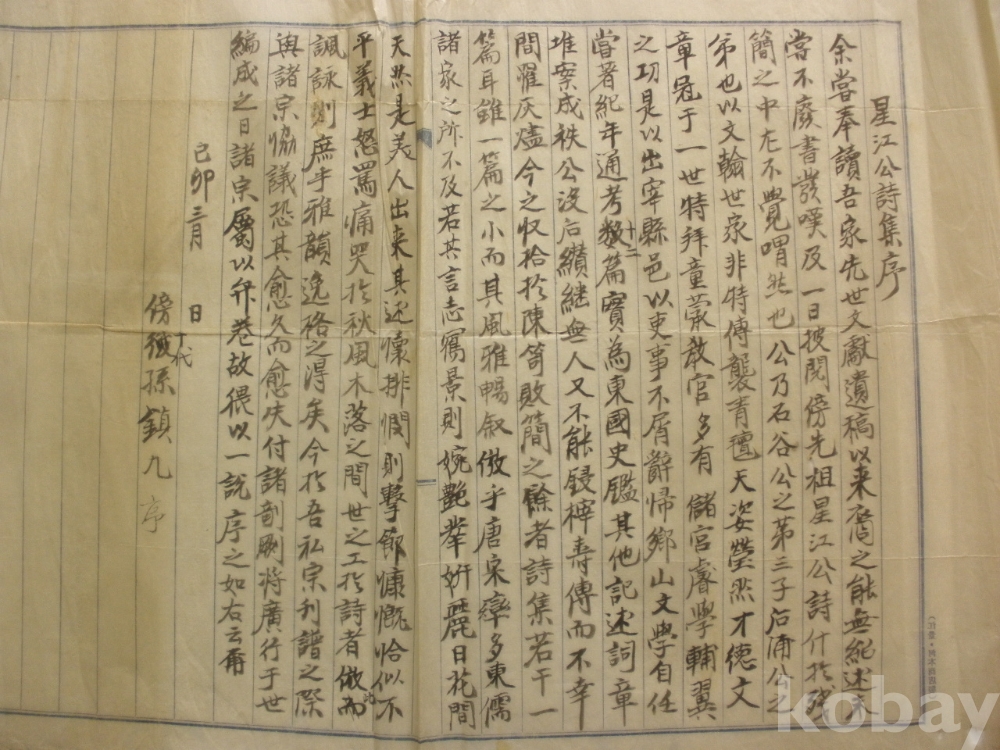 星江公詩集序
余嘗奉讀吾家先世文獻遺稿以來裔之能無紀述未
嘗不廢書發嘆及一日披閱傍先祖星江公詩什於殘
簡之中尤不覺喟然也公乃石谷公之第三子石涌公之
弟也以文翰世家非特傳襲青氊天姿瑩然才德文
章冠于一世特拜童蒙敎官多有儲宮睿學輔翼
之功是以出宰縣邑以吏事不屑辭歸鄉山文學自任
嘗著紀年通考十二數篇實為東國史鑑其他記述詞章
堆案成秩公沒后纘継無人又不能鋟梓壽傳而不幸
間罹灰燼今之収拾於陳笥敗簡之餘者詩集若干一
篇耳雖一篇之小而其風雅暢叙倣乎唐宋孿多東儒
諸家之所不及若其言志寫景則婉艶犖姸麗日花間
天然是美人出來其述懷排悶則擊節慷慨恰似不
平義士怒罵痛哭於秋風木落之間世之工於詩者倣此而
諷詠則庶乎雅韻逸格之得矣今於吾私宗刋譜之際
與諸宗協議恐其愈久而愈失付諸剞劂將廣行于世
編成之日諸宗屬以弁卷故猥以一説序之如右云爾
己卯三月 日
傍十代後孫鎮九 序
kobay